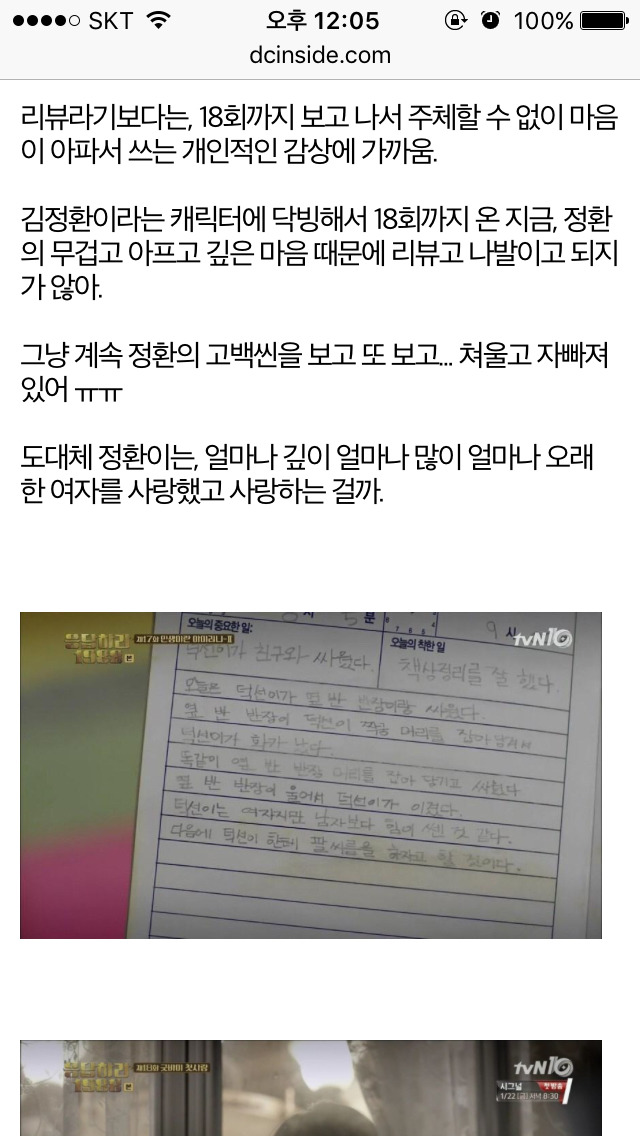 SKT 오후 12:05 100%
dcinside.com
리뷰라기보다는, 18회까지 보고 나서 주체할 수 없이 마음
이 아파서 쓰는 개인적인 감상에 가까움.
김정환이라는 캐릭터에 닥빙해서 18회까지 온 지금, 정환
의 무겁고 아프고 깊은 마음 때문에 리뷰고 나발이고 되지
가 않아.
그냥 계속 정환의 고백씬을 보고 또 보고... 쳐울고 자빠져
있어 ㅠㅠ
도대체 정환이는, 얼마나 깊이 얼마나 많이 얼마나 오래
한 여자를 사랑했고 사랑하는 걸까.
응답하라 1988 제17화 인생이란 아이러니-II
tvN10
시 5 분
9 시
오늘의 중요한 일:
오늘의 착한 일
덕선이가 친구와 싸웠다.
책상정리를 잘 했다.
오늘은 덕선이가 옆 반 반장이랑 싸웠다.
옆 반 반장이 덕선이 머리를 잡아 당겨서
덕선이가 화가 났다.
똑같이 옆 반 반장 머리를 잡아 당기고 싸웠다
옆 반 반장이 울어서 덕선이가 이겼다.
덕선이는 여자지만 남자보다 힘이 쎈 것 같다.
다음에 덕선이 한테 팔씨름을 하자고 할 것이다.
응답하라 1988 제18화 굿바이 첫사랑
tvN10
시그널 첫방송
1/22 [금] 저녁 8:30